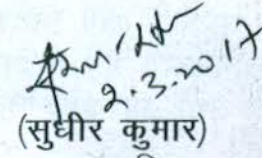 2.3.2017
(सुधीर कुमार)